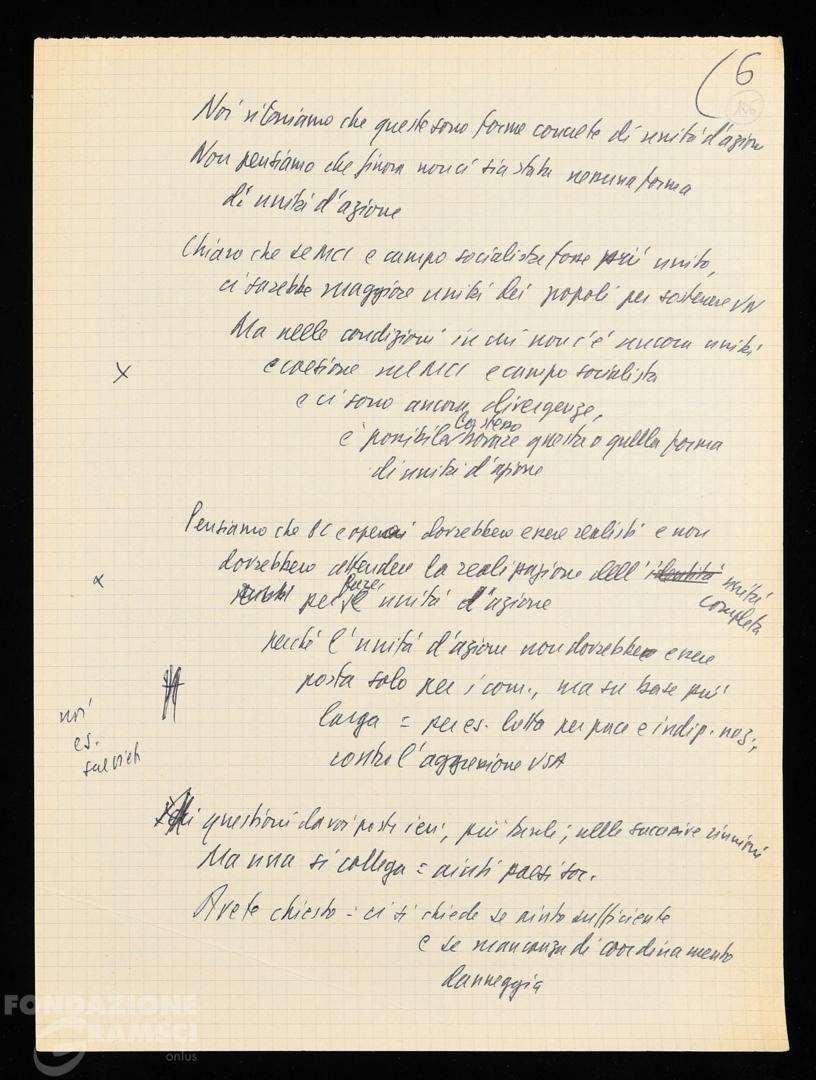 6
106
Noi riteniamo che queste sono forme concrete di unità d'azione
Non pensiamo che finora non ci sia stata nessuna forma
di unità d'azione
Chiaro che se MCI e campo socialista fosse più unito,
ci sarebbe maggiore unità dei popoli per sostenere VN
Ma nelle condizioni in cui non c'è ancora unità
x
e coesione nel MCI e campo socialista
e ci sono ancora divergenze,
lo stesso
è possibile trovare questa o quella forma
di unità d'azione
Pensiamo che PC e operai dovrebbero essere realisti e non
dovrebbero attendere la realizzazione dell'identità unità
completa
x
fare
per unità d'azione
perché l'unità d'azione non dovrebbe essere
posta solo per i com., ma su base più
larga = per es. lotta per pace e indip. naz.,
noi
es.
contro l'aggressione USA
questioni da voi poste ieri, più tardi; nelle successive riunioni
Ma una si collega = aiuti paesi soc.
Avete chiesto = ci si chiede se aiuto sufficiente
e se mancanza di coordinamento
danneggia
FONDAZIONE
GRAMSCI
onlus